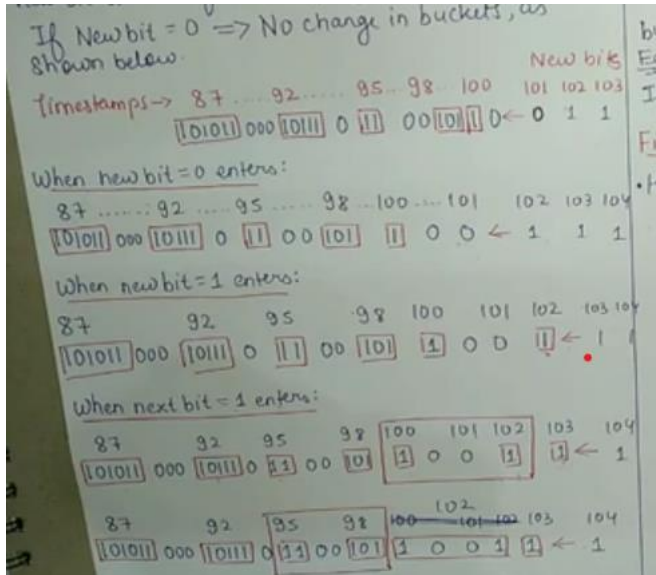 If New bit = 0 => No change in buckets, as
shown below.
New bits
Timestamps -> 87 ..... 92 ...... 95 ... 98 ... 100 101 102 103
101011 000 10111 0 11 00 101 1 0 <- 0 1 1
When new bit = 0 enters:
87 ....... 92 ..... 95 ...... 98 ... 100 .... 101 102 103 104
101011 000 10111 0 11 00 101 1 0 0 <- 1 1 1
When new bit = 1 enters:
87 92 95 98 100 101 102 103 104
101011 000 10111 0 11 00 101 1 0 0 1 <- 1 1
When next bit = 1 enters:
87 92 95 98 100 101 102 103 104
101011 000 10111 0 11 00 101 1 0 0 1 1 <- 1
102
87 92 95 98 100 101 102 103 104
101011 000 10111 0 11 00 101 1 0 0 1 1 <- 1